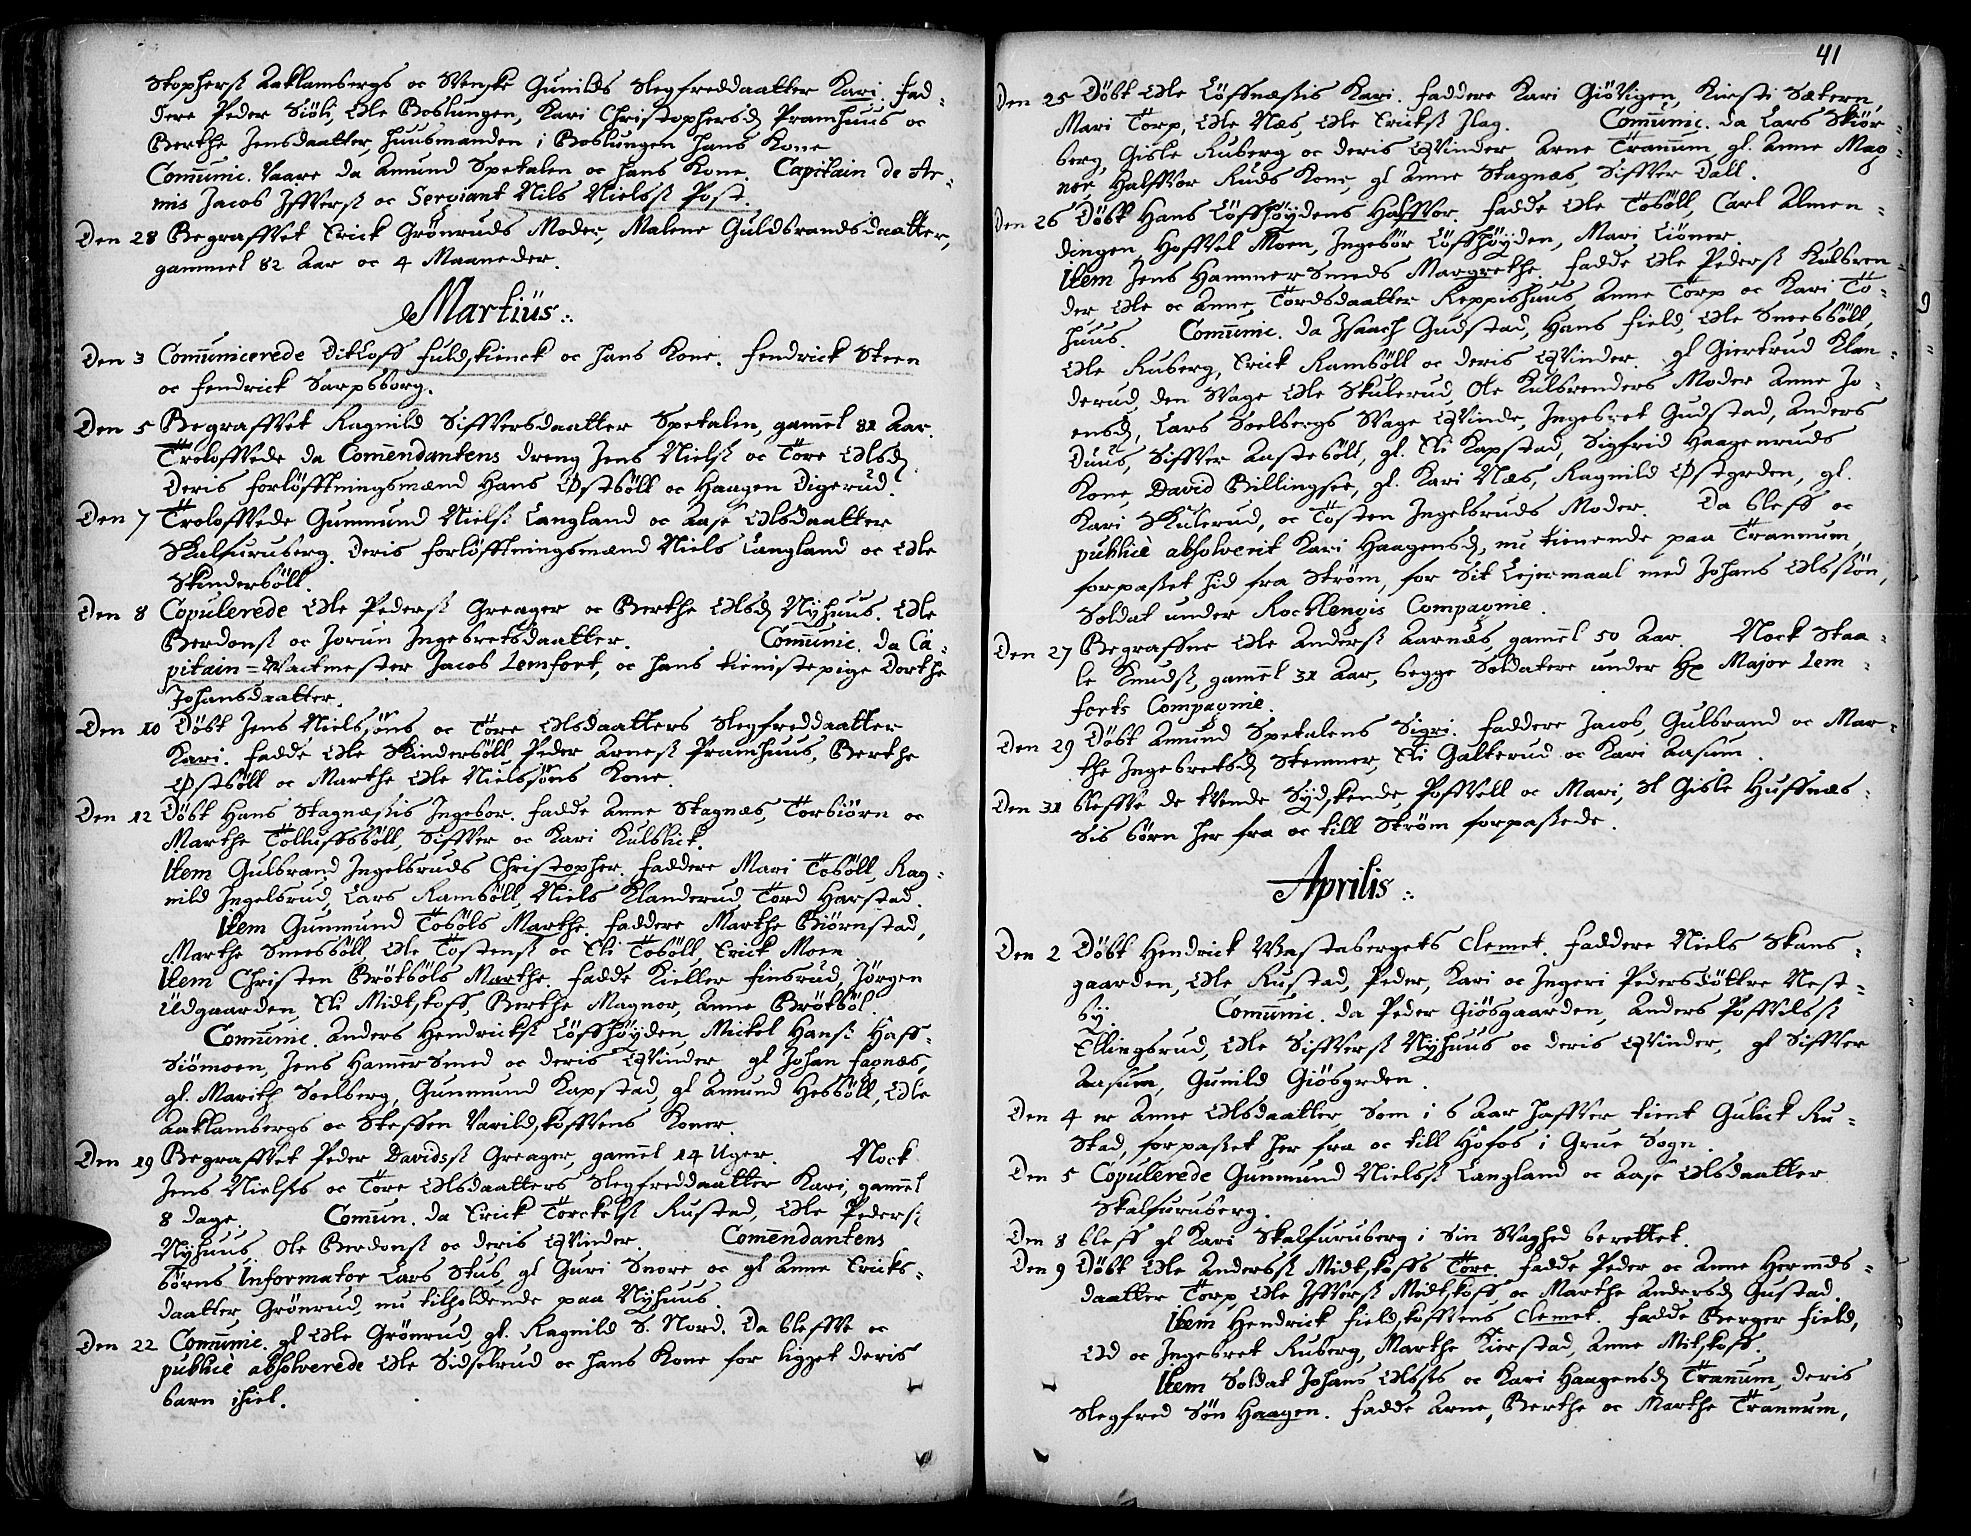 Stophersß Aaklambergs oc Svenske Gunilds Slegfreddaatter Kari. fad-
dere Peder Siöli, Ole Boslungen, Kari Christophersd Pramhuus oc
Berthe Jensdaatter, huusmanden i Boslungen hans Kone
Comunic. Vaare da Amund Spetalen oc hans Kone. Capitain de Ar-
mis Jacob Iffversß oc Serviant Nils Nielsß Post.
Den 28 Begraffvet Erick Grönruds Moder, Malene Guldbrandsdaatter,
gammel 82 Aar oc 4 Maaneder.
Martius
Den 3 Comunicerede Ditloff Fuldskienck oc hans Kone. fendrick Steen
oc fendrick Sarpsborg.
Den 5 Begraffvet Ragnild Siffversdaatter Spetalen, gamel 81 Aar.
Troloffvede da Comendantens dreng Jens Nielsß oc Tore Olsd.
Deris forlöfftningsmænd Hans Östböll oc Haagen Digerud.
Den 7 Troloffvede Gunmund Nielsß Langland oc Aase Olsdaatter
Skalfuruberg. Deris forlöfftningsmænd Niels Langland oc Ole
Skinderböll.
Den 8 Copulerede Ole Pedersß Greager oc Berthe Olsd Nyhuus. Ole
Berdonsß oc Jorun Ingebretsdaatter. Comunic. da Ca-
pitain=Wacktmester Jacob Lemfort, oc hans tienistepige Dorthe
Johansdaatter.
Den 10 Döbt Jens Nielsöns oc Tore Olsdaatters Slegfreddaatter
Kari. fadde Ole Skinderböll, Peder Arnesß Pramhuus, Berthe
Östböll oc Marthe Ole Nielssöns Kone.
Den 12 Döbt Hans Stagnæssis Ingebor. fadde Anne Stagnæs, Torbiörn oc
Marthe Tolluffsböll, Siffver oc Kari Kulblick.
Item Gulbrand Ingelsruds Christopher. faddere Mari Toböll, Rag-
nild Ingelsrud, Lars Ramböll, Niels Klanderud, Tord Harstad.
Item Gunmund Toböls Marthe. faddere Marthe Biörnstad,
Marthe Sneesböll, Ole Tostensß oc Eli Toböll, Erick Moen.
Item Christen Brötböls Marthe. fadde Kieller Finsrud, Jörgen
Udgaarden, Eli Midtskoff, Berthe Magnor, Anne Brötböl.
Comunic. Anders Hendricksß Löffhöyden, Mickel Hansß Haff-
siömoen, Jens Hamersmed oc deris Qvinder. gl Johan Fagnæs,
gl. Marith Soelberg, Gunmund Kapstad, gl Amund Hesböll, Ole
Aaklambergs oc Steffen Varildskoffvens Koner.
Den 19 Begraffvet Peder Davidsß Greager, gamel 14 Uger. Nock
Jens Nielsß oc Tore Olsdaatters Slegfreddaatter Kari, gamel
8 dage. Comun. da Erick Torckelsß Rustad, Ole Pedersß
Nyhuus, Ole Berdonsß oc deris Qvinder. Comendantens
börns Informator Lars Stub, gl Guri Snore oc gl Anne Ericks-
daatter, Grönrud, nu tilholdende paa Nyhuus.
Den 22 Comunic. gl Ole Grönrud, gl. Ragnild S. Nord. Da bleffve oc
publicè absolverede Ole Sidselrud oc hans Kone for ligget deris
barn ihiel.
41
Den 25 Döbt Ole Löffnæssis Kari. faddere Kari Giövigen, Kirsti Sætern,
Mari Torp, Ole Næs, Ole Ericksß Flag. Comunic. da Lars Skiör-
berg, Gisle Ruberg oc deris Qvinder. Arne Tranum, gl. Anne Mag-
nor, Halffvor Ruds Kone, gl Anne Stagnæs, Siffver Dall.
Den 26 Döbt Hans Löffhöydens Halffvor. fadde Ole Toböll, Carl Almen-
dingen, Hoffvel Moen, Ingebör Löffhöyden, Mari Liöner.
Item Jens Hammersmeds Margrethe. fadde Ole Pedersß Kulbren-
der, Ole oc Anne, Tordsdaatter Reppishuus, Anne Torp oc Kari To-
huus. Comunic. da Isaach Gudstad, Hans Field, Ole Sneesböll,
Ole Ruberg, Erick Ramböll oc deris Qvinder. gl Giertrud Klan-
derud, den Svage Ole Skulerud, Ole Kulbrenders Moder Anne Jo-
ensd, Lars Soelbergs Svage Qvinde, Ingebret Gudstad, Anders
Duus, Siffver Aasteböll, gl. Eli Kapstad, Sigfrid Haagenruds
Kone, David Billingsøe, gl. Kari Næs, Ragnild Østgrden, gl.
Kari Skulerud, oc Tosten Ingelsruds Moder. Da bleff oc
publicè absolverit Kari Haagensd, nu tienende paa Tranum,
forpasset hid fra Ström, for Sit Lejermaal med Johans Olssön,
Soldat under Rocklengis Compagnie.
Den 27 Begraffne Ole Andersß Aarnæs, gamel 50 Aar. Nock Staa-
le Knudsß, gamel 31 Aar, begge Soldatere under Hr Major Lem-
forts Compagnie.
Den 29 Döbt Amund Spetalens Sigri. faddere Jacob, Gulbrand oc Mar-
the Ingebretsd Stemner, Eli Galterud oc Kari Aasum.
Den 31 bleffve de tvende Sydskende, Poffvell oc Mari, Sl Gisle Huffnæs-
sis börn her fra oc till Ström forpassede.
Aprilis
Den 2 Döbt Hendrick Vastabergets Clemet. faddere Niels Skans-
gaarden, Ole Rustad, Peder, Kari oc Ingeri Pedersdöttre Nest-
by. Comunic. da Peder Giösgaarden, Anders Poffvelsß
Ellingsrud, Ole Siffversß Nyhuus oc deris Qvinder, gl Siffver
Aasum, Gunild Giösgrden.
Den 4 er Anne Olsdaatter, Som i 6 Aar haffver tient Gulick Ru-
stad, forpasset her fra oc till Hofos i Grue Sogn.
Den 5 Copulerede Gunmund Nielsß Langland oc Aase Olsdaatter
Skalfuruberg.
Den 8 bleff gl Kari Skalfuruberg i Sin Svaghed berettet.
Den 9 Döbt Ole Andersß Midtskoffs Tore. fadde Peder oc Anne Hermds-
daatter Torp, Ole Iffversß Midtskoff, oc Marthe Andersd Gustad.
Item Hendrick Fieldskoffvens Clemet. fadde Berger Field,
Od oc Ingebret Ruberg, Marthe Kierstad, Anne Mitskoff.
Item Soldat Johans Olsß oc Kari Haagensd Tranum, deris
Slegfred Sön Haagen. fadde Arne, Berthe oc Marthe Trannum,